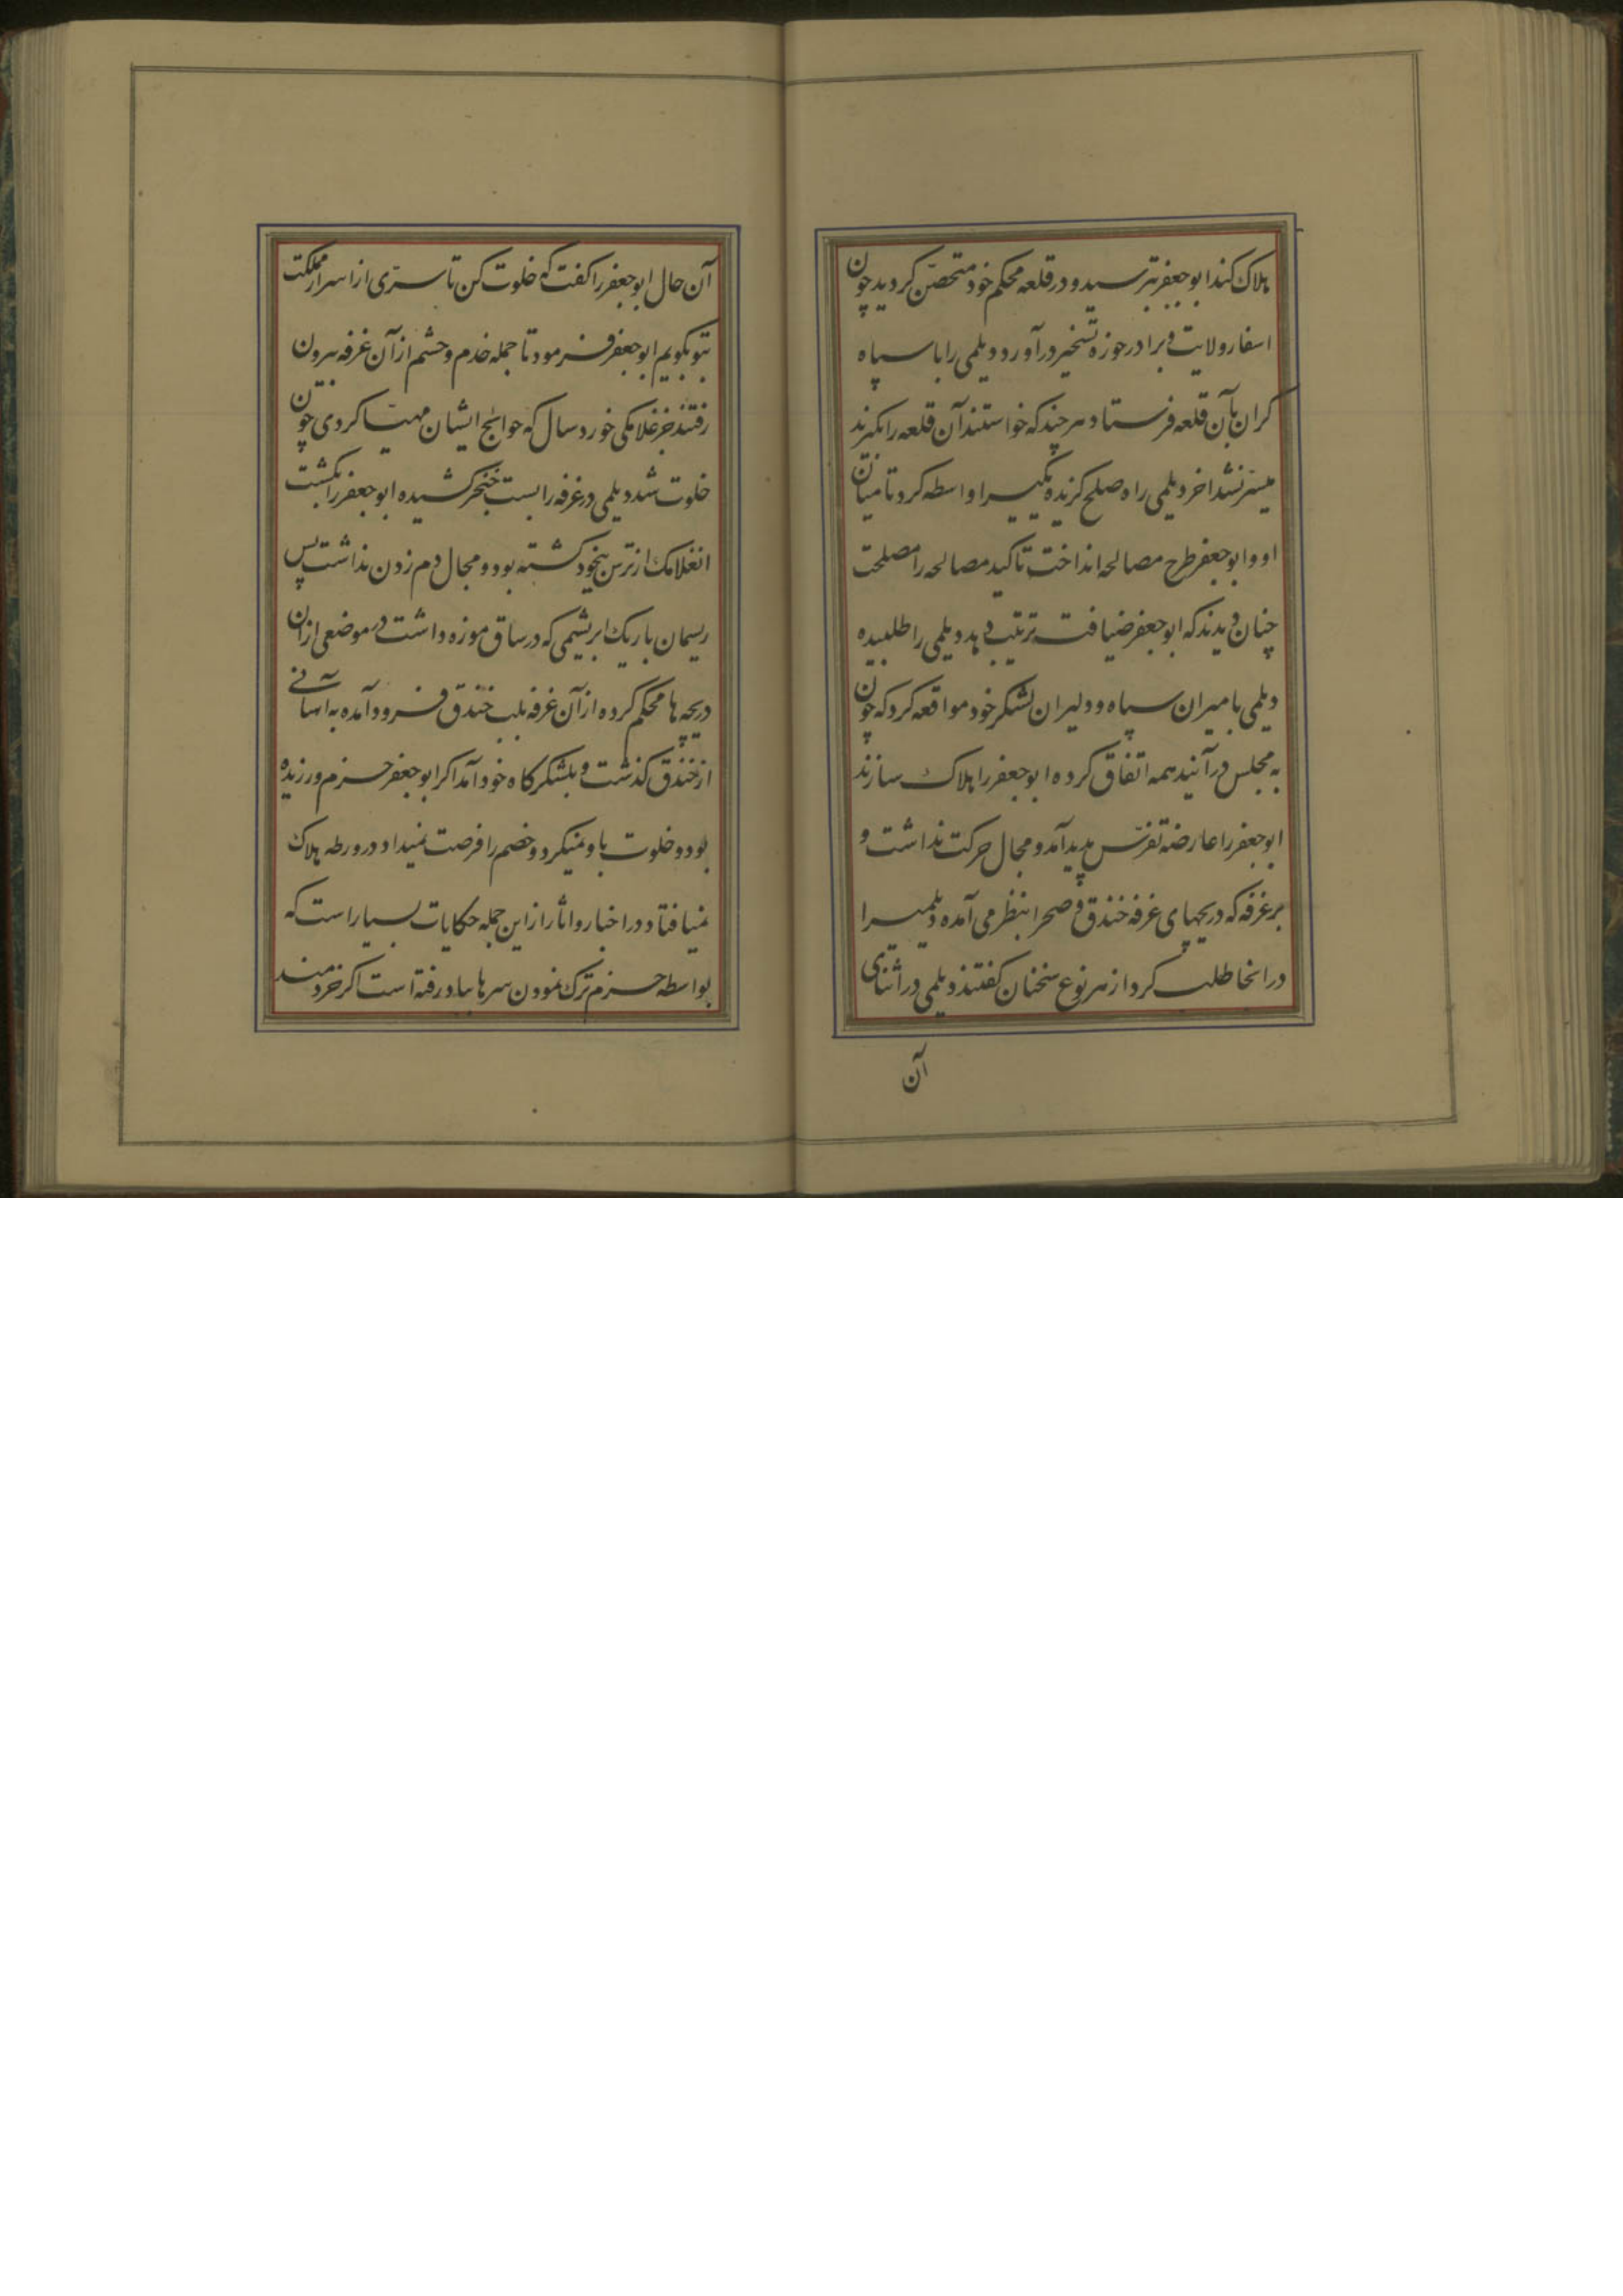 هلاک کند ابوجعفر بترسید و در قلعه محکم خود متحصّن کردید چون
اسفار ولایت ویرا در حوزه تسخیر درآورد و دیلمی را با سپاه
کران بآن قلعه فرستاد هر چند که خواستند آن قلعه را بکیرند
میسّر نشد اخر دیلمی راه صلح کزیده یکیرا واسطه کرد تا میان
او و ابوجعفر طرح مصالحه انداخت تاکید مصالحه را مصلحت
چنان دیدند که ابوجعفر ضیافت ترتیب دهد و دیلمی را طلبیده
دیلمی با میران سپاه و دلیران لشکر خود مواقعه کرد که چون
به مجلس درآئید همه اتفاق کرده ابوجعفر را هلاک سازند
ابوجعفر را عارضه تفرّس پدید آمد و مجال حرکت نداشت و
بر غرفه که دریچهای غرفه خندق و صحرا بنظر می آمده دیلمیرا
در انجا طلب کرد از هر نوع سخنان کفتند و دیلمی در اثنای
آن
آن حال ابوجعفر را کفت که خلوت کن تا سرّی از اسرار مملکت
بتو بکویم ابوجعفر فرمود تا جمله خدم و حشم از آن غرفه بیرون
رفتند جز غلامکی خورد سال که حوائج ایشان مهیّا کردی چون
خلوت شد دیلمی در غرفه را بست خنجر کشیده ابوجعفر را بکشت
انغلامک از ترس بیخود کشته بود و مجال دم زدن نداشت پس
ریسمان باریک ابریشمی که در ساق موزه داشت در موضعی ازان
دریچه ها محکم کرده از آن غرفه بلب خندق فرود آمده به آسانی
از خندق کذشت و بلشکرکاه خود آمد اکر ابوجعفر حزم ورزیده
بود و خلوت با و نمیکرد و خصم را فرصت نمیداد در ورطه هلاک
نمیافتاد و در اخبار و اثار از این جمله حکایات بسیار است که
بواسطه حزم ترک نمودن سرها بباد رفته است اکر خردمند